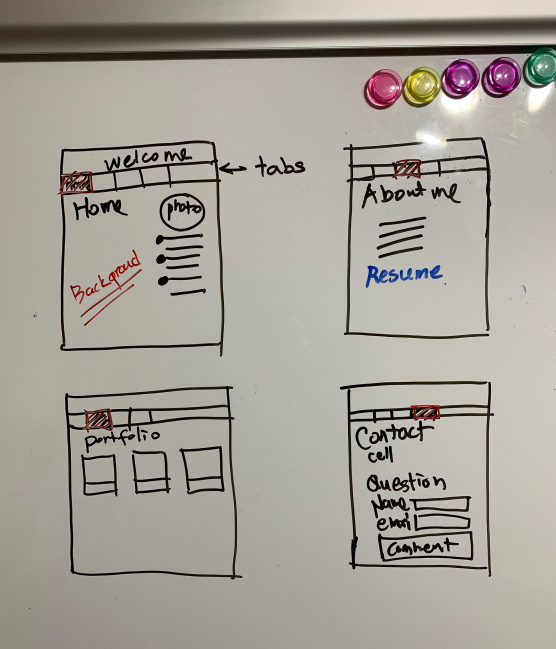 welcome
tabs
Home
photo
Background
About me
Resume
portfolio
Contact
cell
Question
Name
email
Comment